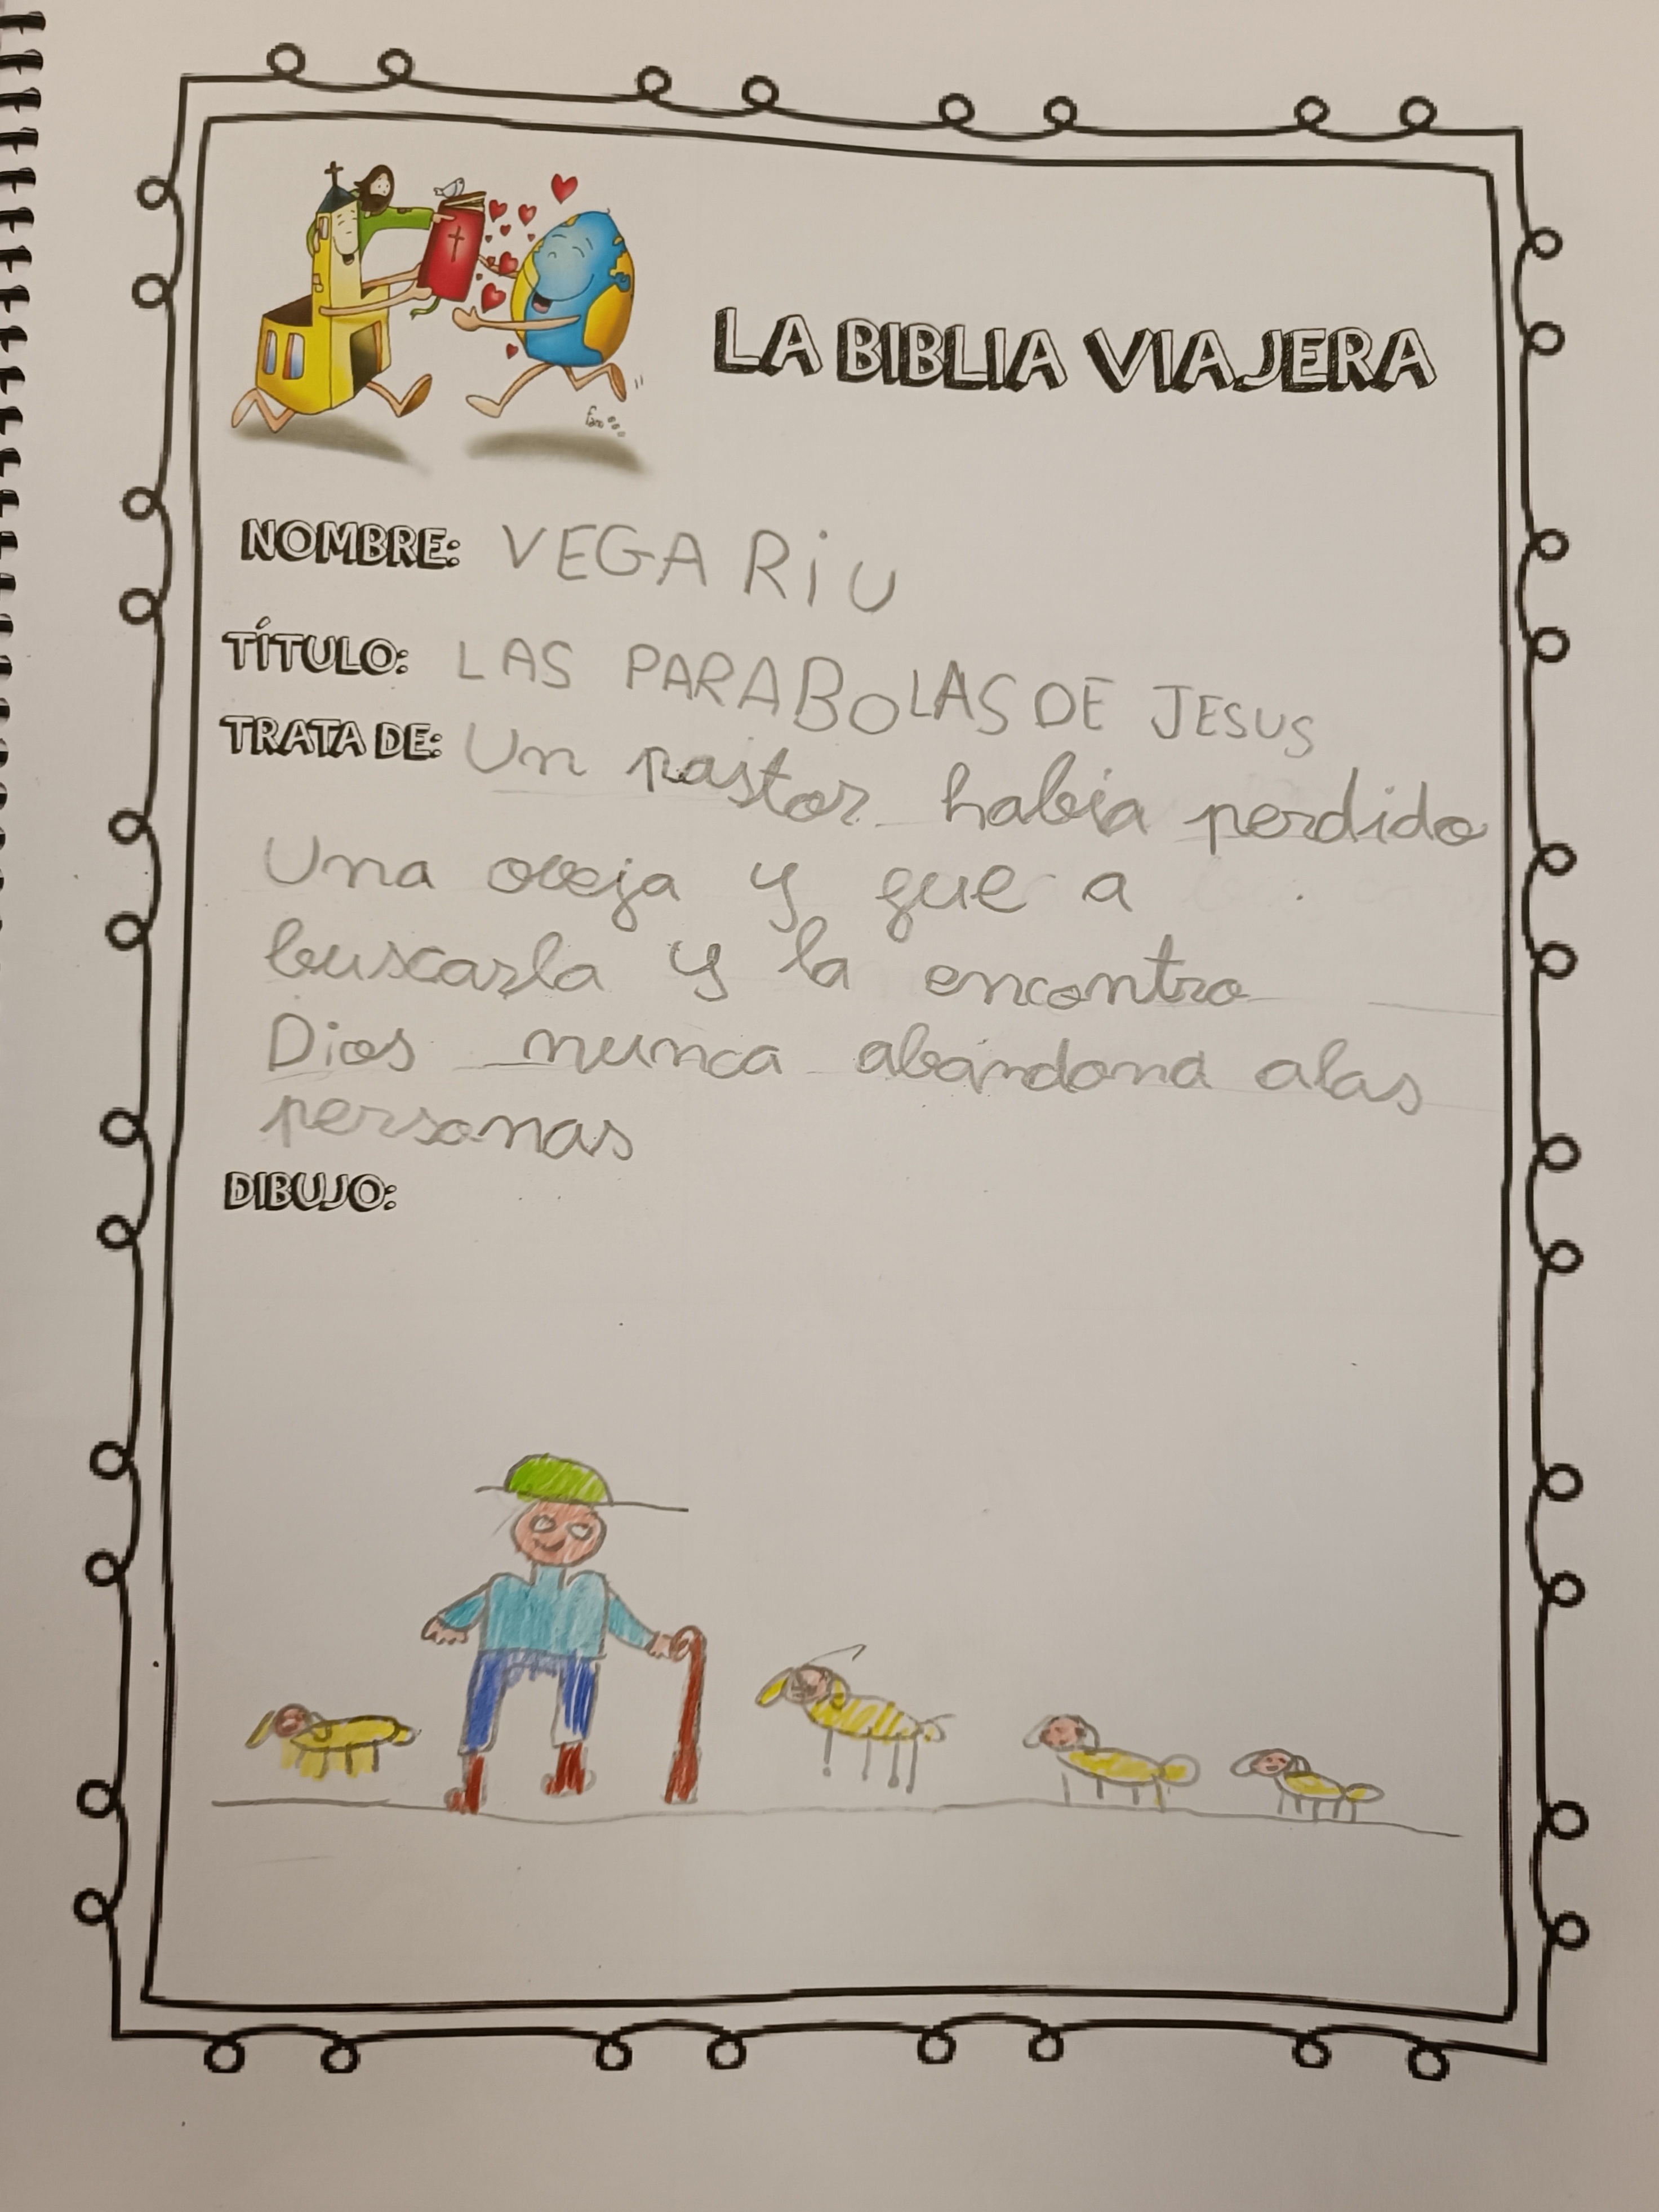 LA BIBLIA VIAJERA
NOMBRE: VEGA RiU
TÍTULO: LAS PARABOLAS DE JESUS
TRATA DE: Un pastor había perdido
Una oveja y gue a
buscarla y la encontro
Dios nunca abandona alas
personas
DIBUJO: